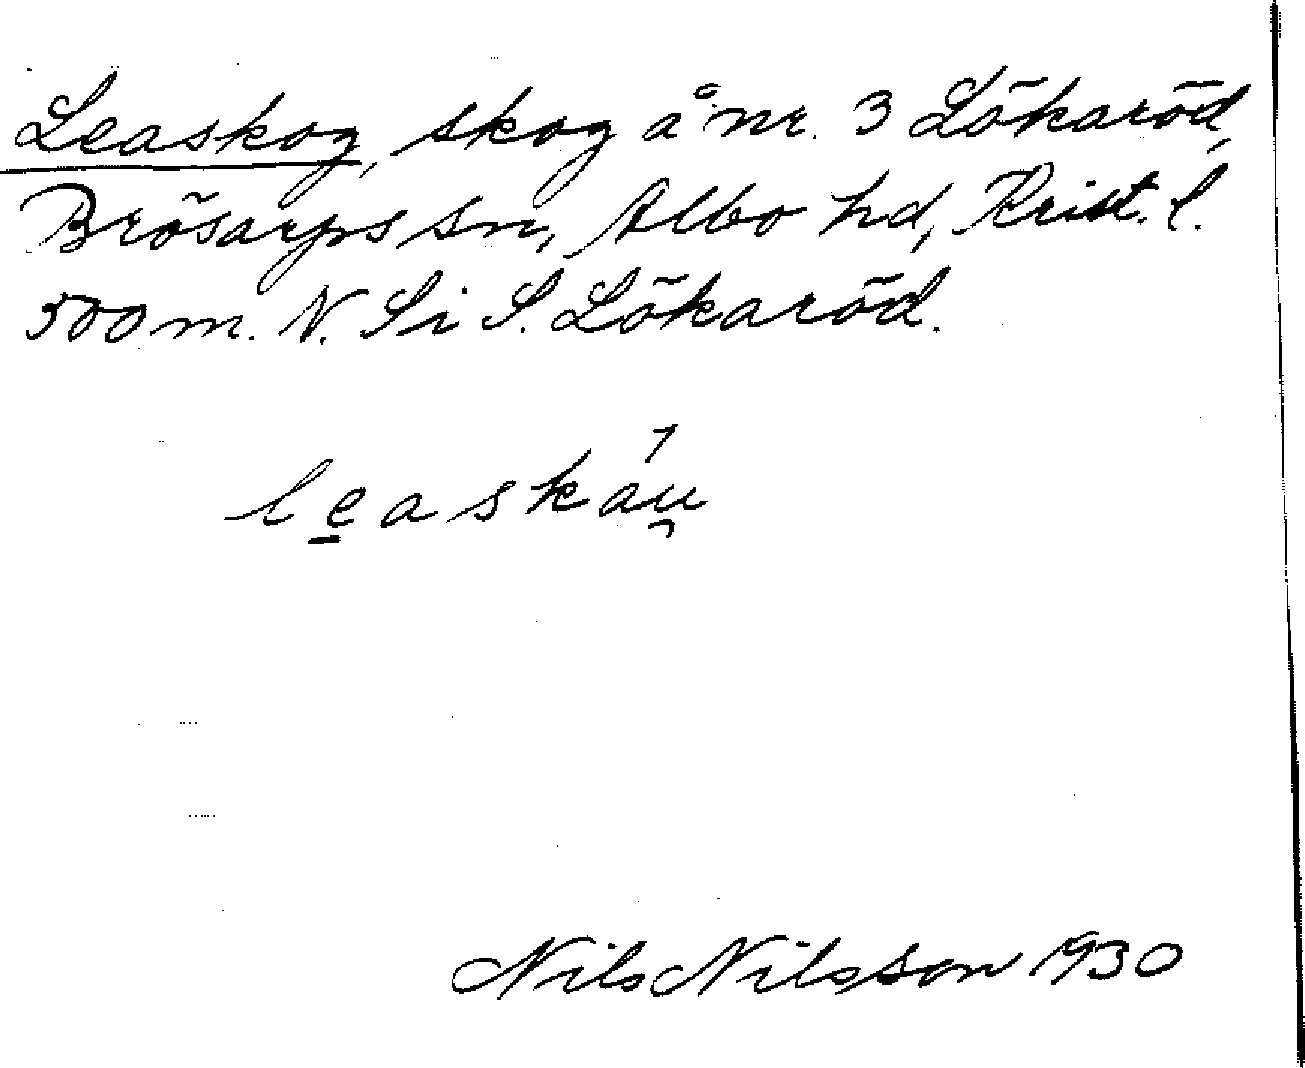 Leaskog, skog å nr. 3 Lökaröd,
Brösarps sn, Albo hd, Krist. l.
500 m. N. Si S. Lökaröd.
leaskau̯
Nils Nilsson 1930